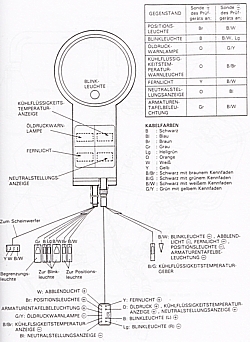 GEGENSTAND
Sonde ⊕ des Prüfgeräts an:
Sonde ⊖ des Prüfgeräts an:
POSITIONS-LEUCHTE Br B/W
BLINKLEUCHTE B B/W, Lg
ÖLDRUCK-WARNLAMPE O G/Y
KÜHLFLÜSSIGKEITSTEMPERATUR-WARNLEUCHTE B/Br
FERNLICHT Y B/W
NEUTRALSTELLUNGSANZEIGE O Bl
ARMATUREN-TAFELBELEUCHTUNG Gr B/W
BLINK-LEUCHTE
KÜHLFLÜSSIGKEITS-TEMPERATUR-ANZEIGE
ÖLDRUCKWARN-LAMPE
FERNLICHT
NEUTRALSTELLUNGS-ANZEIGE
KABELFARBEN
B : Schwarz
Bl : Blau
Br : Braun
Gr : Grau
Lg : Hellgrün
O : Orange
W : Weiß
Y : Gelb
B/Br : Schwarz mit braunem Kennfaden
B/G : Schwarz mit grünem Kennfaden
B/W : Schwarz mit weißem Kennfaden
G/Y : Grün mit gelbem Kennfaden
Zum Scheinwerfer
Y W B/W
Begrenzungs-leuchte
Zur Blink-leuchte
Zur Positions-leuchte
B/W: BLINKLEUCHTE ⊖, ABBLEND-LICHT ⊖, FERNLICHT ⊖, POSITIONSLEUCHTE ⊖, ARMATURENTAFELBE-LEUCHTUNG ⊖
B/G: KÜHLFLÜSSIGKEITSTEMPERATUR-GEBER
W: ABBLENDLICHT ⊕
Br: POSITIONSLEUCHTE ⊕
ARMATURENTAFELBELEUCHTUNG ⊕
G/Y: ÖLDRUCKWARNLAMPE ⊖
B/Br: KÜHLFLÜSSIGKEITSTEMPERATUR-ANZEIGE ⊖
Bl: NEUTRALSTELLUNGSANZEIGE ⊖
Y: FERNLICHT ⊕
O: ÖLDRUCK ⊕, KÜHLFLÜSSIGKEITSTEMPERATUR-ANZEIGE ⊕, NEUTRALSTELLUNGSANZEIGE ⊕
B: BLINKLEUCHTE (L) ⊕
Lg: BLINKLEUCHTE (R) ⊕